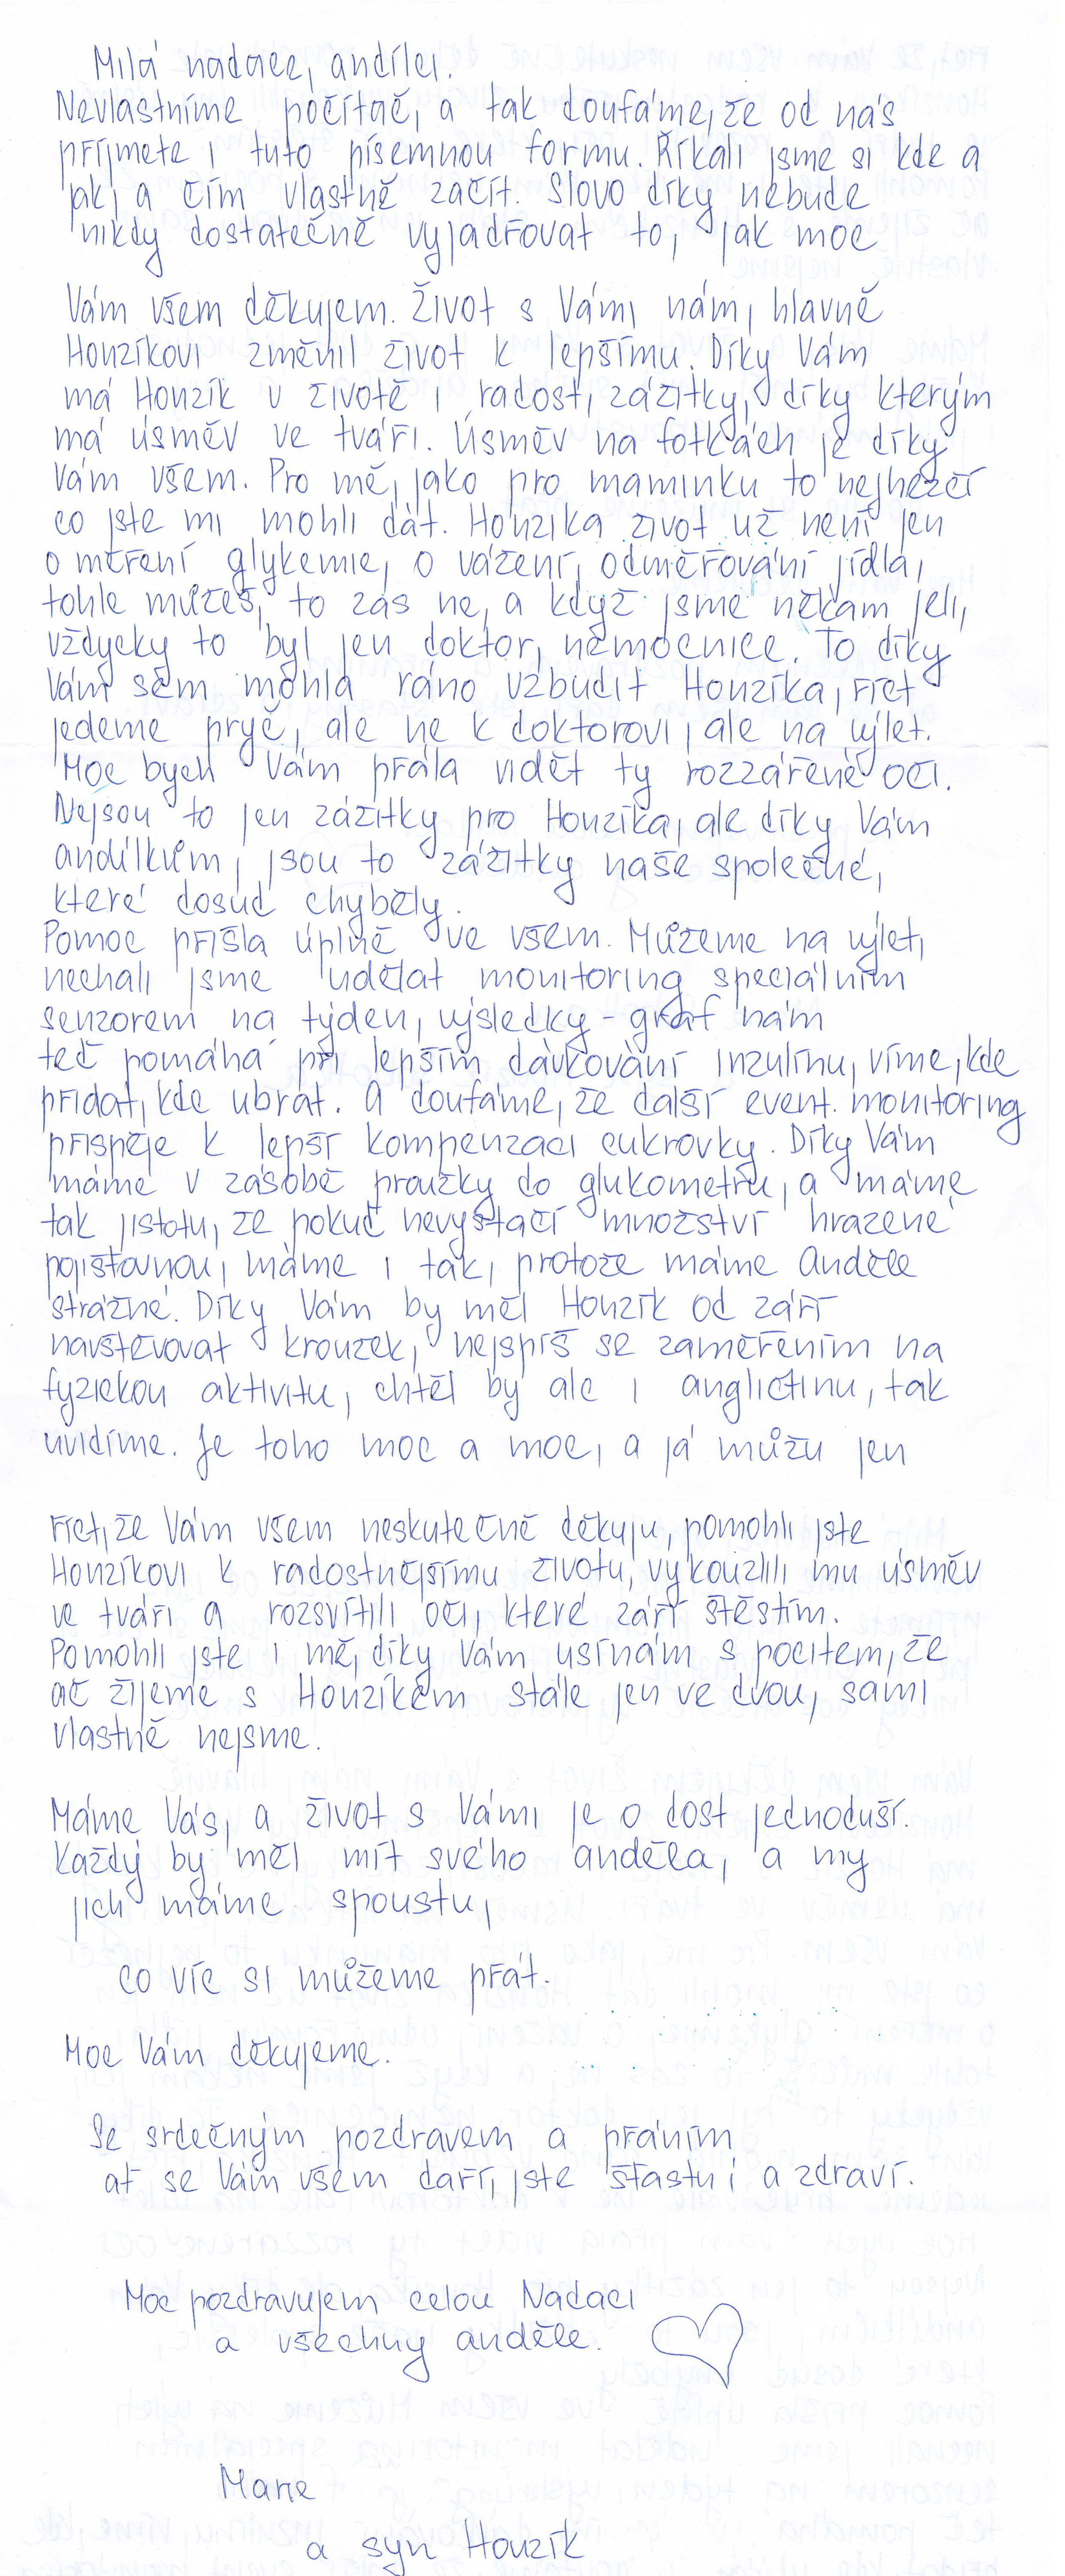 Milá nadace, andílci.
Nevlastníme počítač, a tak doufáme, že od nás
příjmete i tuto písemnou formu. Říkali jsme si kde a
jak, a čím vlastně začít. Slovo díky nebude
nikdy dostatečně vyjadřovat to, jak moc
Vám všem děkujem. Život s Vámi nám, hlavně
Honzíkovi změnil život k lepšímu. Díky Vám
má Honzík v životě i radost, zážitky, díky kterým
má úsměv ve tváři. Úsměv na fotkách je díky
Vám všem. Pro mě, jako pro maminku to nejhezčí
co jste mi mohli dát. Honzíka život už není jen
o měření glykemie, o vážení, odměřování jídla,
tohle můžeš, to zas ne, a když jsme někam jeli,
vždycky to byl jen doktor, nemocnice. To díky
Vám sem mohla ráno vzbudit Honzíka, říct
jedeme pryč, ale ne k doktorovi, ale na výlet.
Moc bych Vám přála vidět ty rozzářené oči.
Nejsou to jen zážitky pro Honzíka, ale díky Vám
andílkům, jsou to zážitky naše společné,
které dosud chyběly.
Pomoc přišla úplně ve všem. Můžeme na výlet,
nechali jsme udělat monitoring speciálním
senzorem na týden, výsledky - graf nám
teď pomáhá při lepším dávkování inzulínu, víme, kde
přidat, kde ubrat. A doufáme, že další event. monitoring
přispěje k lepší kompenzaci cukrovky. Díky Vám
máme v zásobě proužky do glukometru, a máme
tak jistotu, že pokud nevystačí množství hrazené
pojišťovnou, máme i tak, protože máme Anděle
strážné. Díky Vám by měl Honzík od září
navštěvovat kroužek, nejspíš se zaměřením na
fyzickou aktivitu, chtěl by ale i angličtinu, tak
uvidíme. Je toho moc a moc, a já můžu jen
říct, že Vám všem neskutečně děkuju, pomohli jste
Honzíkovi k radostnějšímu životu, vykouzlili mu úsměv
ve tváři a rozsvítili oči, které září štěstím.
Pomohli jste i mě, díky Vám usínám s pocitem, že
ač žijeme s Honzíkem stále jen ve dvou, sami
vlastně nejsme.
Máme Vás, a život s Vámi je o dost jednoduší.
Každý by měl mít svého anděla, a my
jich máme spoustu,
co víc si můžeme přát.
Moc Vám děkujeme.
Se srdečným pozdravem a přáním
ať se Vám všem daří, jste šťastni a zdraví.
Moc pozdravujem celou Nadaci
a všechny anděle.
Marie
a syn Honzík